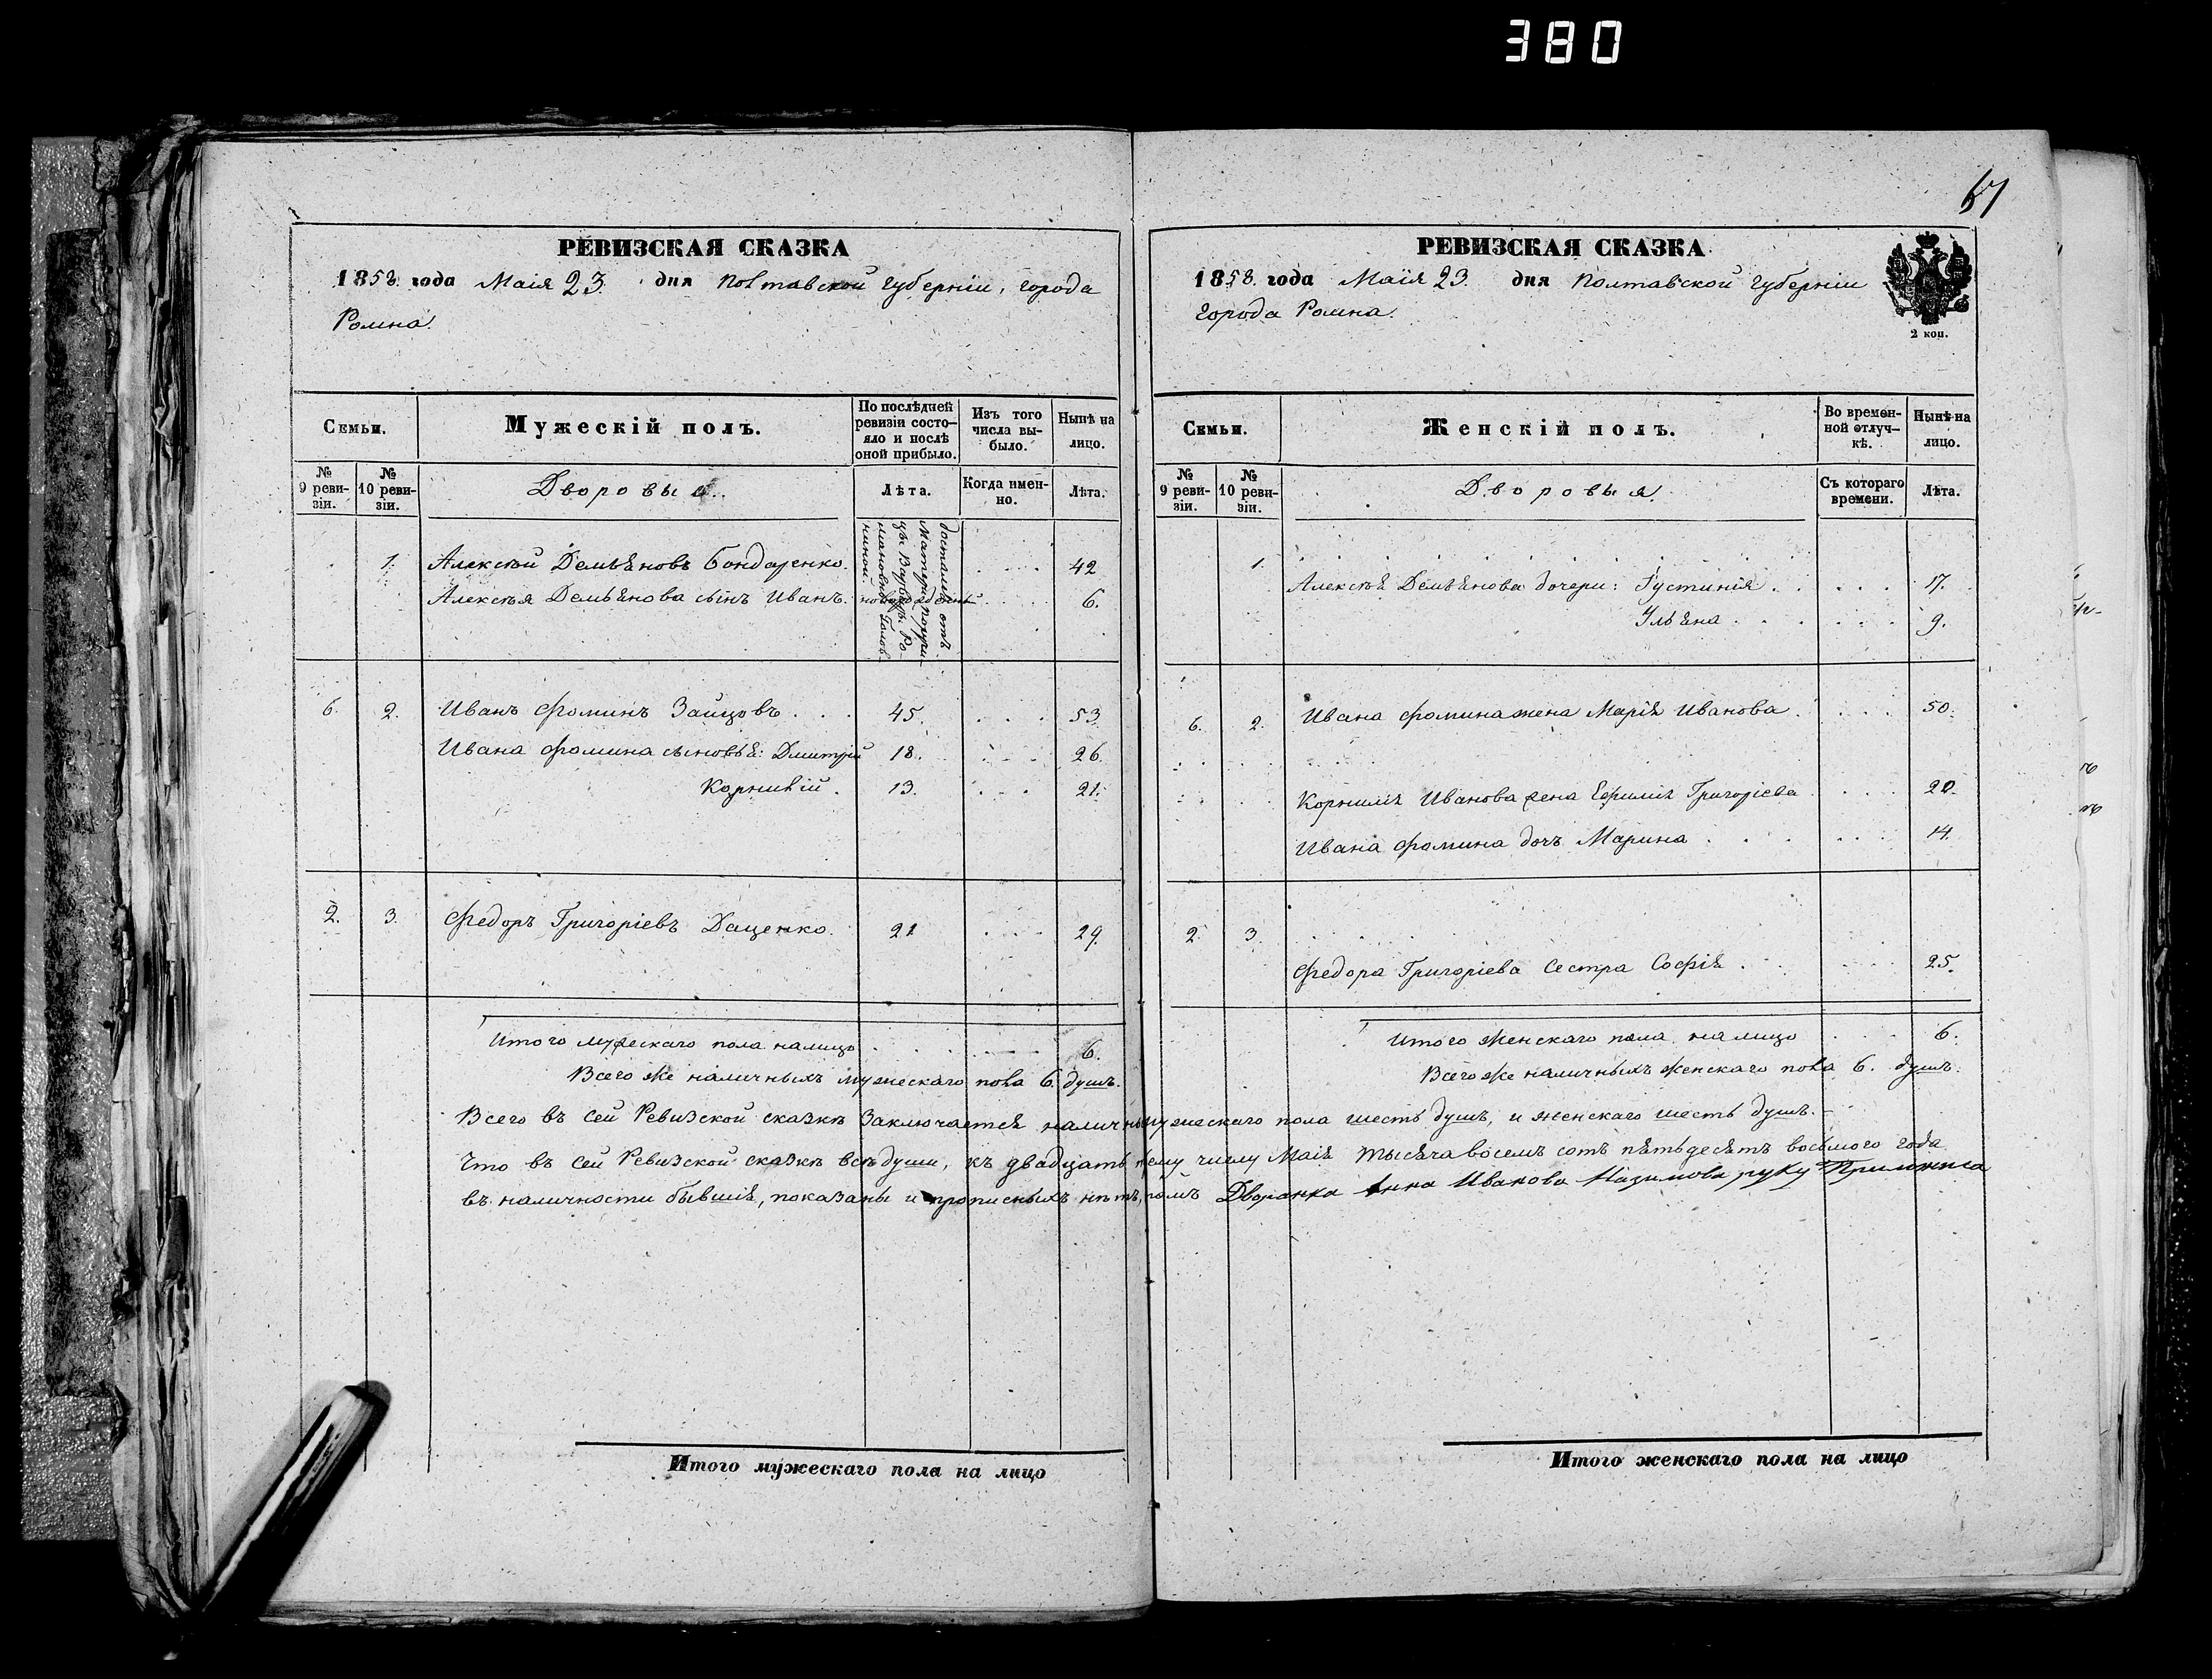 380
67
РЕВИЗСКАЯ СКАЗКА
1858. года Маія 23. дня Полтавской губерніи, города
Ромна.
Семьи.
Мужескій полъ.
По послѣдней ревизіи состояло и послѣ оной прибыло.
Изъ того числа выбыло.
Нынѣ на лицо.
№ 9 ревизіи.
№ 10 ревизіи.
Дворовыя.
Лѣта.
Когда именно.
Лѣта.
достались отъ
Матери
цы Варвары Ро-
мановны Голов-
ниной.
1. Алексѣй Демьяновъ Бондаренко. 42
Алексѣя Демьянова сынъ Иванъ. новорожденъ 6.
6. 2. Иванъ Фоминъ Зайцовъ . . . 45. . . . 53.
Ивана Фомина сыновья: Дмитрій 18. . . . 26.
Корнилій. 13. . . . 21.
2. 3. Федоръ Григоріевъ Даценко. 21 . . . 29.
Итого мужескаго пола налицо . . . 6.
Всего же наличныхъ мужескаго пола 6. душъ.
РЕВИЗСКАЯ СКАЗКА
1858. года Маія 23. дня Полтавской губерніи
города Ромна.
2 коп.
Семьи.
Женскій полъ.
Во временной отлучкѣ.
Нынѣ на лицо.
№ 9 ревизіи.
№ 10 ревизіи.
Дворовыя.
Съ котораго времени.
Лѣта.
1.
Алексѣя Демьянова дочери: Густинія . . . 17.
Ульяна . . . 9.
6. 2. Ивана Фомина жена Марія Иванова . . . 50.
Корнилія Иванова жена Ефимія Григоріева . . . 20.
Ивана Фомина дочь Марина . . . 14.
2. 3.
Федора Григоріева Сестра Софія . . . 25.
Итого женскаго пола на лицо . . . 6.
Всего же наличныхъ женскаго пола 6. душъ.
Всего въ сей Ревизской сказкѣ Заключается наличныхъ мужескаго пола шесть душъ, и женскаго шесть душъ.
Что въ сей Ревизской сказкѣ всѣ души, къ двадцать чему числу Маія тысяча восемь сотъ пятьдесятъ восьмого года
въ наличности бывшія, показаны и прописныхъ нѣтъ, Дворянка Анна Иванова Назимова руку Приложила
Итого мужескаго пола на лицо
Итого женскаго пола на лицо